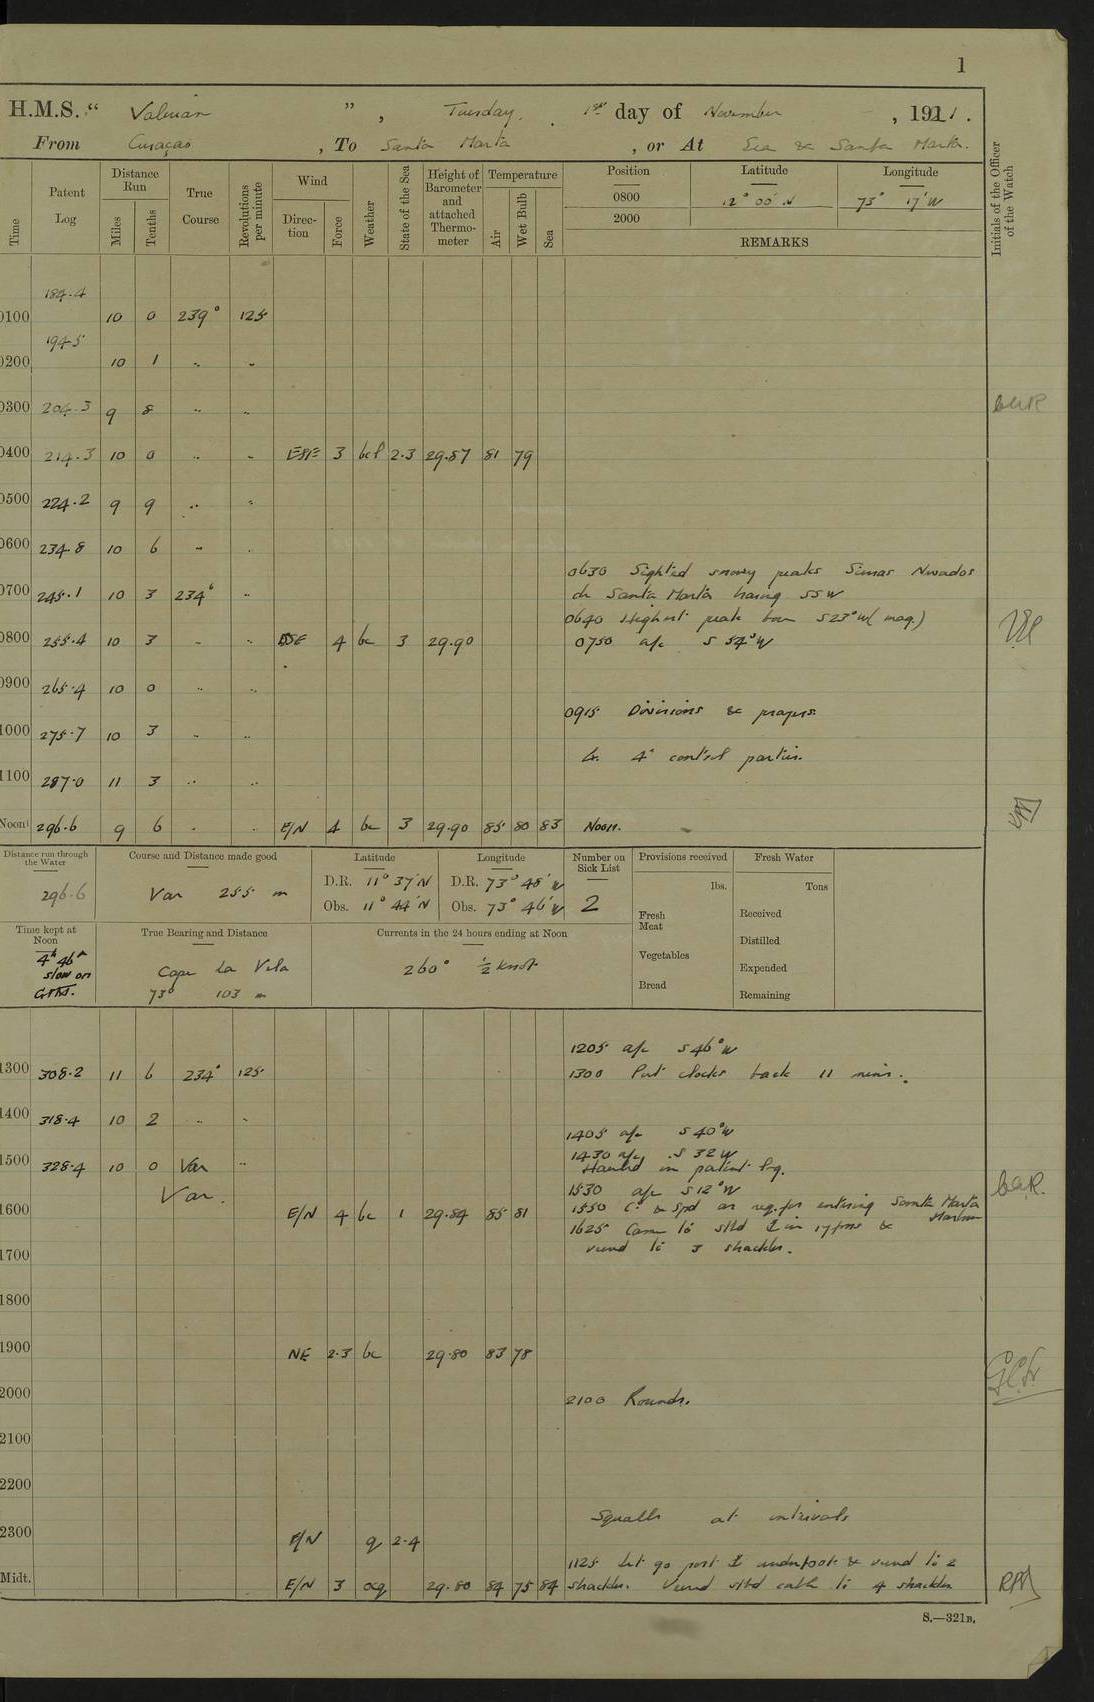 1
H.M.S. " Valerian ", Tuesday, 1st day of November, 1921.
From Curaçao, To Santa Marta, or At Sea & Santa Marta.
Time Patent Log Distance Run Miles Tenths True Course Revolutions per minute Wind Direction Force Weather State of the Sea Height of Barometer and attached Thermometer Temperature Air Wet Bulb Sea Position Latitude Longitude Initials of the Officer of the Watch
0800 12° 00' N 73° 17' W
2000
REMARKS
184.4
0100 10 0 239° 125
194.5
0200 10 1 " "
0300 204.3 9 8 " "
0400 214.3 10 0 " " ESE 3 bcl 2.3 29.87 81 79
0500 224.2 9 9 " "
0600 234.8 10 6 " "
0630 Sighted snowy peaks Sierras Nevados
0700 245.1 10 3 234° " de Santa Marta bearing SSW
0640 Highest peak bore S 23° W (mag.)
0800 255.4 10 3 " " ESE 4 bc 3 29.90 0750 a/c S 54° W
0900 265.4 10 0 " "
0915 Divisions & prayers.
1000 275.7 10 3 " "
4" control parties.
1100 287.0 11 3 " "
Noon 296.6 9 6 " " E/N 4 bc 3 29.90 85 80 83 Noon.
Distance run through the Water Course and Distance made good Latitude Longitude Number on Sick List Provisions received Fresh Water
296.6 Var 255 m D.R. 11° 37' N D.R. 73° 48' W lbs. Tons
Obs. 11° 44' N Obs. 73° 46' W 2
Fresh Meat Received
Vegetables Distilled
Bread Expended
Remaining
Time kept at Noon True Bearing and Distance Currents in the 24 hours ending at Noon
4h 46m slow on G.M.T. Cape La Vela 73° 103 m 260° ½ knot
1205 a/c S 46° W
1300 308.2 11 6 234° 125 1300 Put clocks back 11 mins.
1400 318.4 10 2 " "
1405 a/c S 40° W
1430 a/c S 32 W
1500 328.4 10 0 Var " Hauled in patent log.
Var. 1530 a/c S 12° W
1600 E/N 4 bc 1 29.84 85 81 1550 Co. & Spd as req. for entering Santa Marta Harbour
1625 Came to stbd in 17 fms &
1700 veered to 3 shackles.
1800
1900 NE 2.3 bc 29.80 83 78
2000 2100 Rounds.
2100
2200
Squalls at intervals
2300 E/N q 2.4
1125 Let go port underfoot & veered to 2
Midt. E/N 3 ocq 29.80 84 75 84 shackles. Veered stbd cable to 4 shackles
S.—321B.